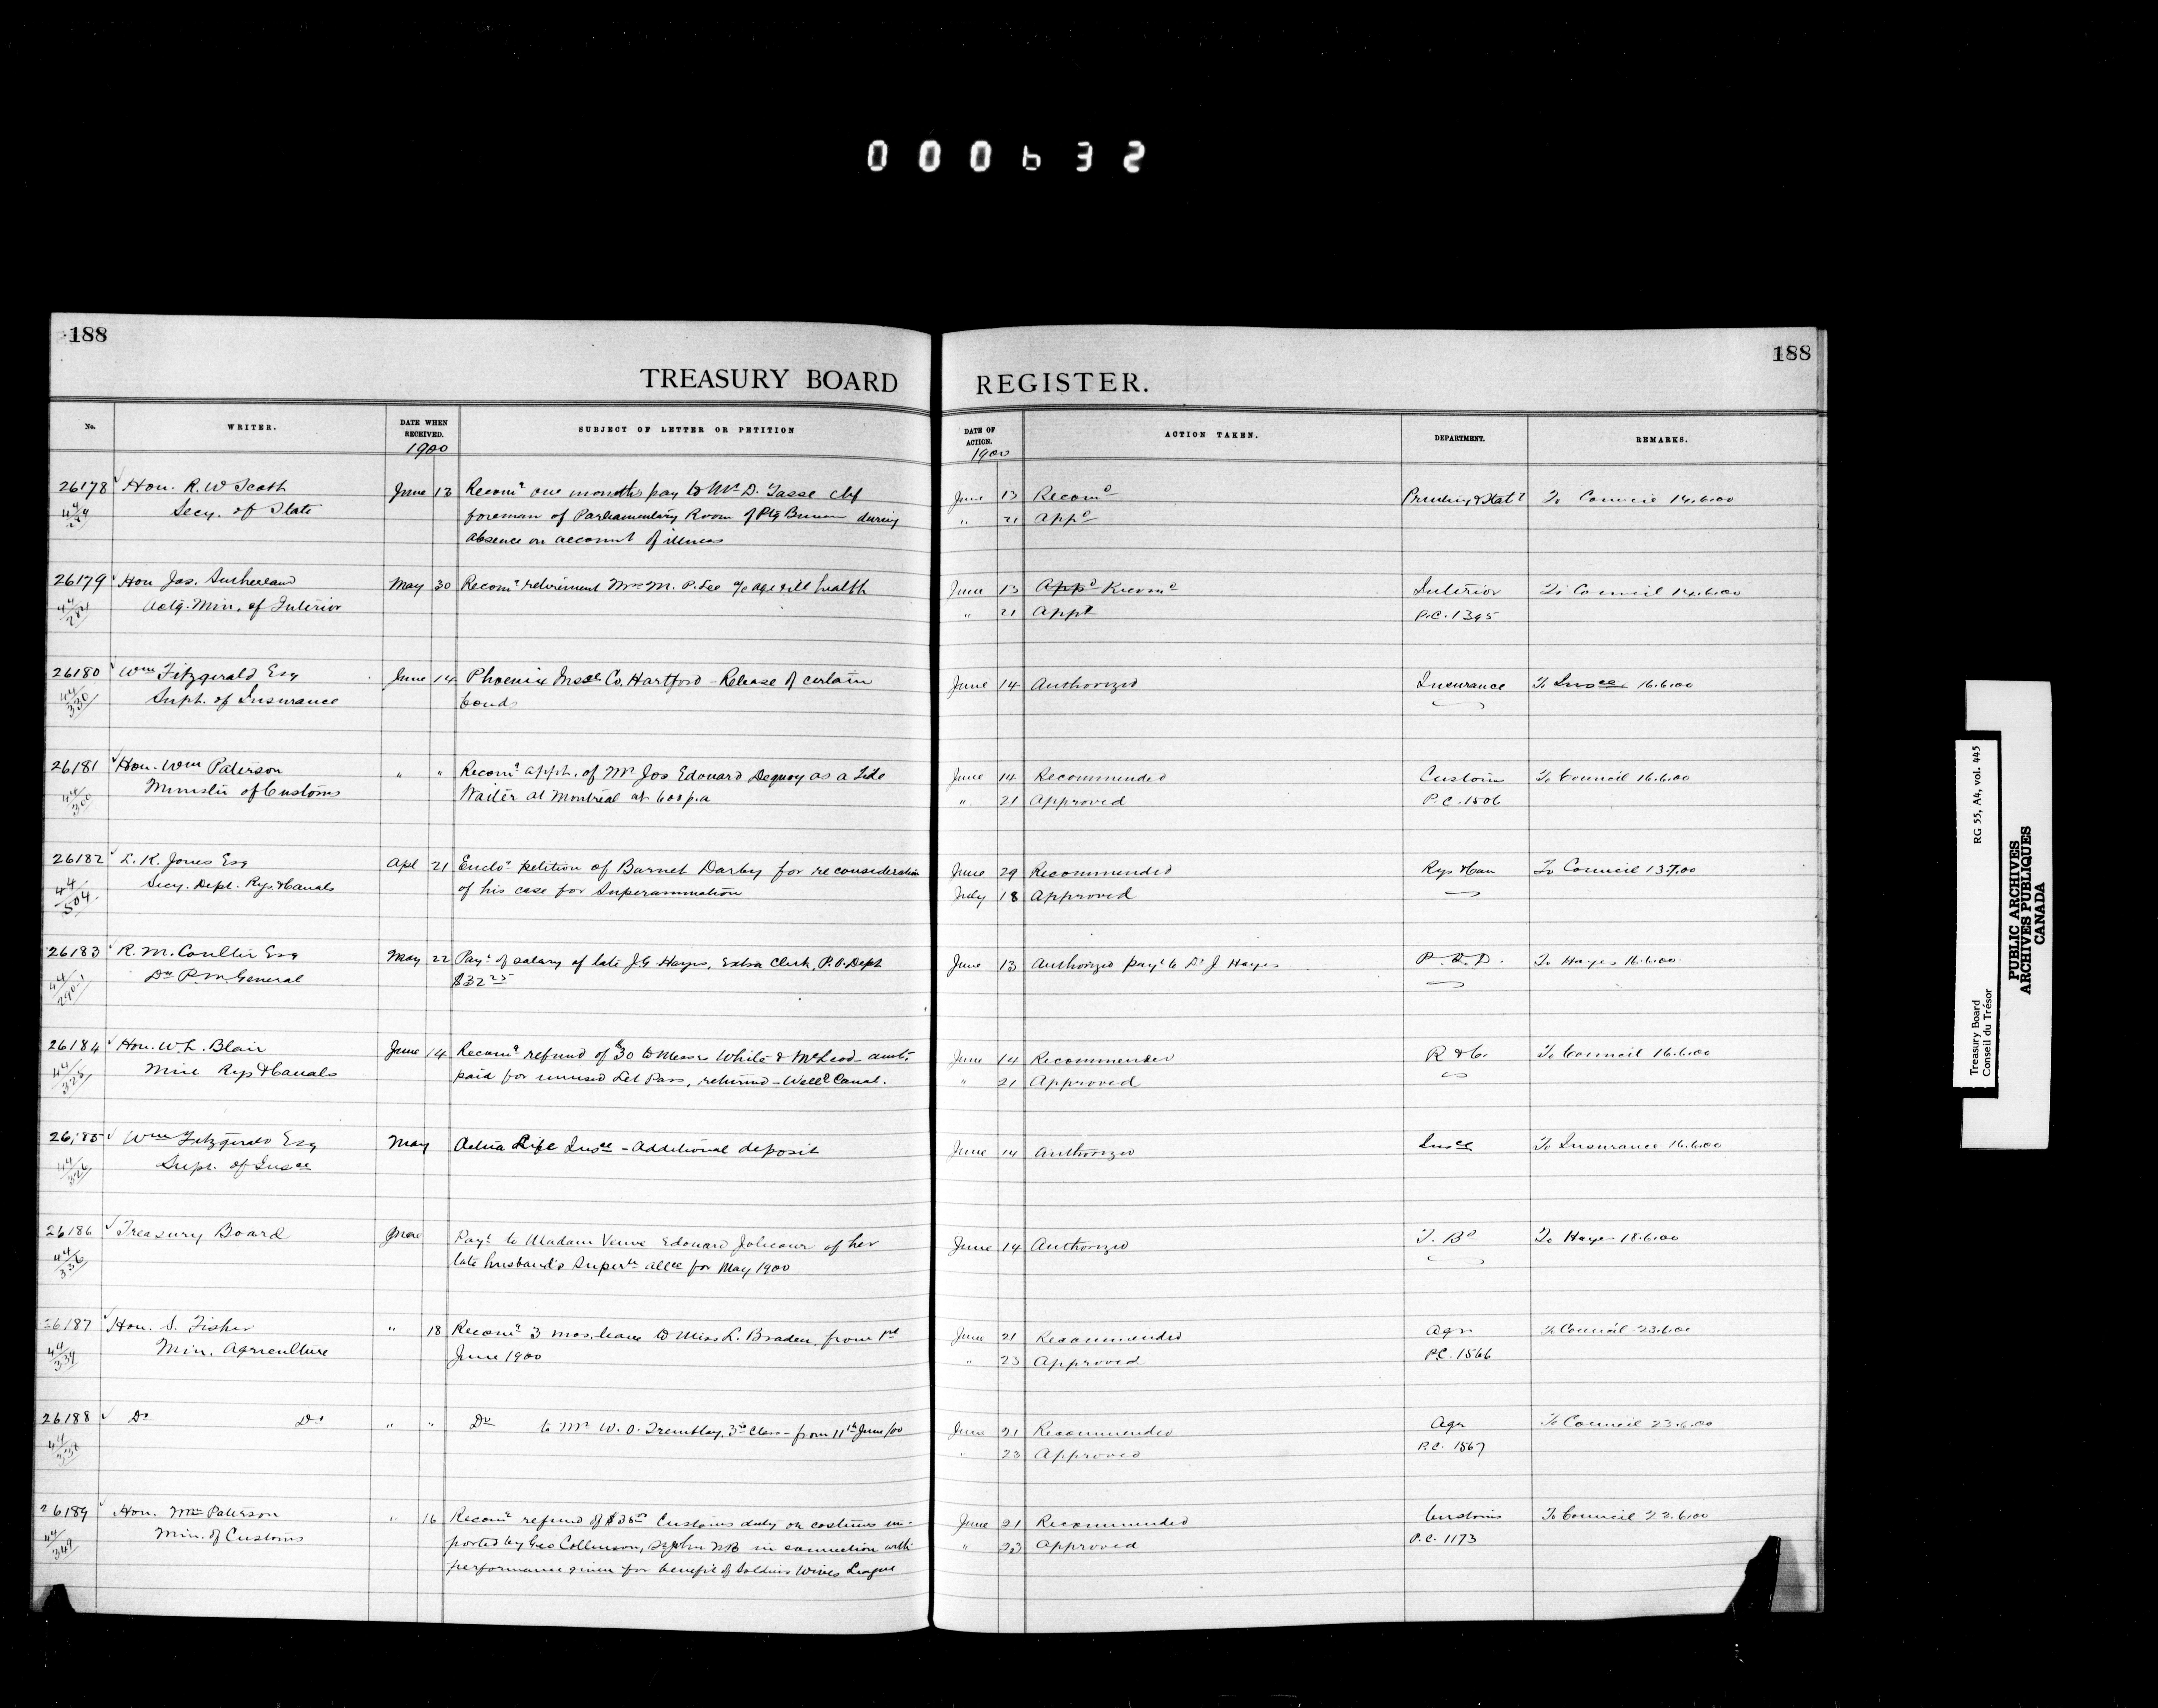 000632
188
188
TREASURY BOARD REGISTER.
No. WRITER. DATE WHEN RECEIVED. SUBJECT OF LETTER OR PETITION DATE OF ACTION. ACTION TAKEN. DEPARTMENT. REMARKS.
1900 1900
26178 Hon. R. W Scott June 13 Recomd one months pay to Mr D. Tasse chf June 13 Recomd Printing & Staty To Council 14.6.00
Secy. of State foreman of Parliamentary Room of Ptg Bureau during " 21 Appd
absence on account of illness
26179 Hon Jas. Sutherland May 30 Recomd retirement Mrs M. P. Lee a/c age & ill health June 13 Appd Recomd Interior To Council 14.6.00
44/284 Actg. Min. of Interior " 21 Appd P.C. 1395
26180 Wm Fitzgerald Esq June 14 Phoenix Insce Co. Hartford - Release of certain June 14 Authorized Insurance To Insce 16.6.00
44/330 Supt. of Insurance bonds
26181 Hon. Wm Paterson " " Recomd appt. of Mr Jos Edouard Deguoy as a Tide June 14 Recommended Customs To Council 16.6.00
44/300 Minister of Customs Waiter at Montreal at 600 p.a " 21 Approved P.C. 1506
26182 L. K. Jones Esq Apl 21 Enclg petition of Barnet Darby for reconsideration June 29 Recommended Rys & Can To Council 13.7.00
44/504 Secy. Dept. Rys & Canals of his case for Superannuation July 18 Approved
26183 R. M. Coulter Esq May 22 Payt of salary of late J. G. Hayes, Extra Clerk, P.O. Dept June 13 Authorized payt to J Hayes P.O.D. To Hayes 16.6.00
44/290 Dy P.M. General $32 25
26184 Hon. W. L. Blair June 14 Recomd refund of $30 to Messrs White & McLeod amt. June 14 Recommended R & C. To Council 16.6.00
44/325 Min Rys & Canals paid for unused Let Pass, returned - Welld Canal. " 21 Approved
26185 Wm Fitzgerald Esq May Aetna Life Insce - Additional deposit June 14 Authorized Insce To Insurance 16.6.00
44/326 Supt. of Insce
26186 Treasury Board June Payt to Madam Veuve Edouard Jolicoeur of her June 14 Authorized T. Bd To Hayes 18.6.00
44/336 late husband's Super allce for May 1900
26187 Hon. S. Fisher " 18 Recomd 3 mos. leave to Miss L. Braden, from 1st June 21 Recommended Agr To Council 23.6.00
44/339 Min. Agriculture June 1900 " 23 Approved P.C. 1566
26188 Do Do " " Do to Mr W. O. Tremblay, 3rd Class - from 11th June/00 June 21 Recommended Agr To Council 23.6.00
" 23 Approved P.C. 1567
26189 Hon. Wm Paterson " 16 Recomd refund of Customs duty on costumes im- June 21 Recommended Customs To Council 23.6.00
44/349 Min. of Customs ported by Geo Collinson, St John NB in connection with " 23 Approved P.C. 1173
performance given for benefit of Soldiers Wives League
Treasury Board RG 55, A4, vol. 445
Conseil du Trésor
PUBLIC ARCHIVES
ARCHIVES PUBLIQUES
CANADA